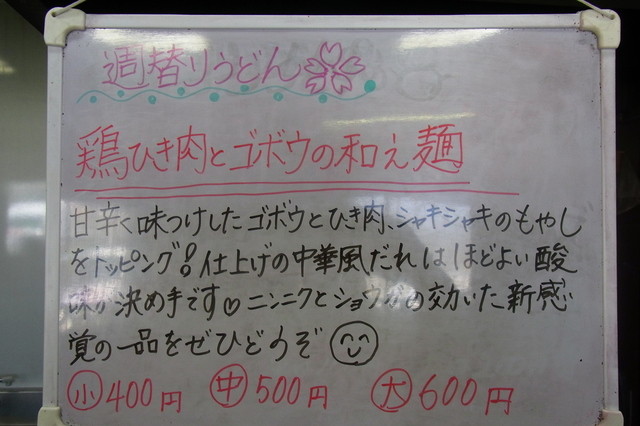 週替りうどん
鶏ひき肉とゴボウの和え麺
甘辛く味つけしたゴボウとひき肉、シャキシャキのもやし
をトッピング!仕上げの中華風だれはほどよい酸
味が決め手です♡ニンニクとショウガの効いた新感
覚の一品をぜひどうぞ
小400円 中500円 大600円